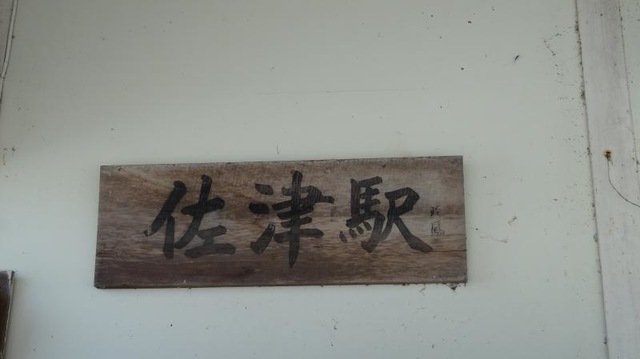 佐津駅